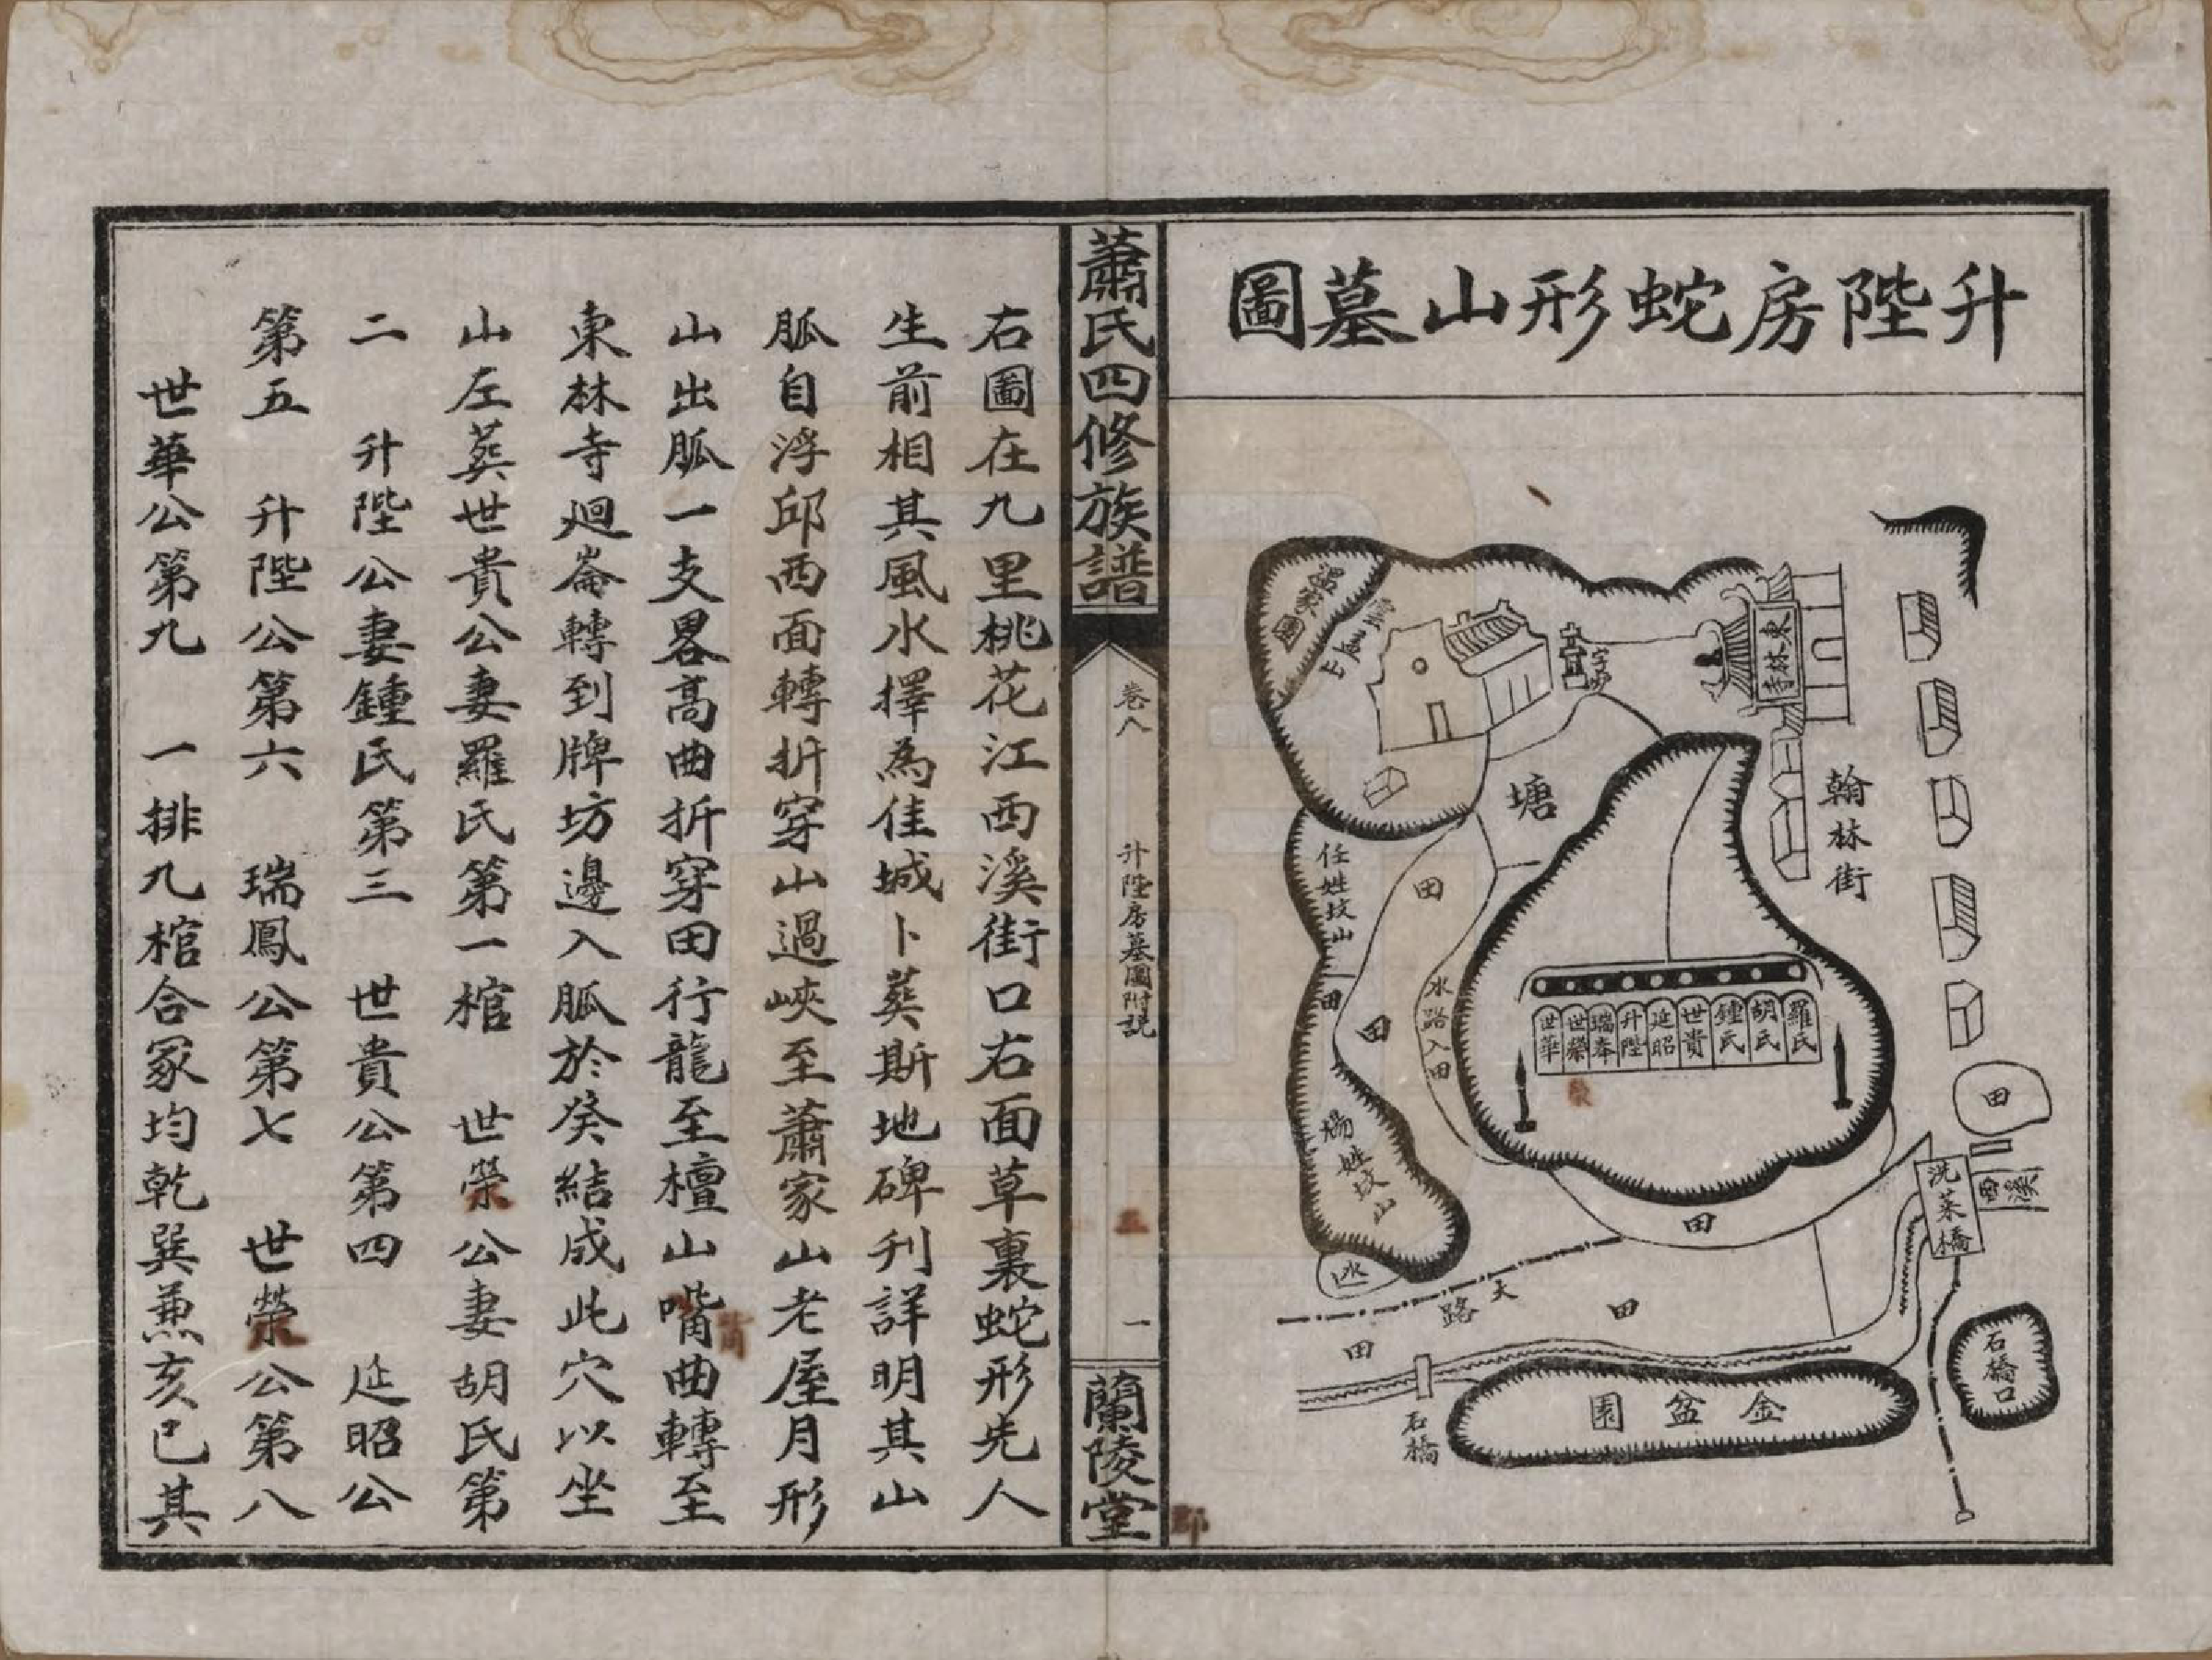 升陛房蛇形山墓圖
東林寺
字爐
翰林街
塘
任姓坟山
田
田
田
水路入田
楊姓坟山
羅氏
胡氏
鍾氏
世貴
延昭
升陛
瑞奉
世榮
世華
田
洗菜橋
石橋口
田
大路
田
田
石橋
金盆園
蕭氏四修族譜
卷八
升陛房墓圖附說
一
蘭陵堂
右圖在九里桃花江西溪街口右面草裏蛇形先人
生前相其風水擇為佳城卜葬斯地碑刋詳明其山
脈自浮邱西面轉折穿山過峽至蕭家山老屋月形
山出脈一支畧高曲折穿田行龍至檀山嘴曲轉至
東林寺廻崙轉到牌坊邊入脈於癸結成此穴以坐
山左葬世貴公妻羅氏第一棺 世榮公妻胡氏第
二 升陛公妻鍾氏第三 世貴公第四 延昭公
第五 升陛公第六 瑞鳳公第七 世榮公第八
世華公第九 一排九棺合冢均乾巽兼亥已其